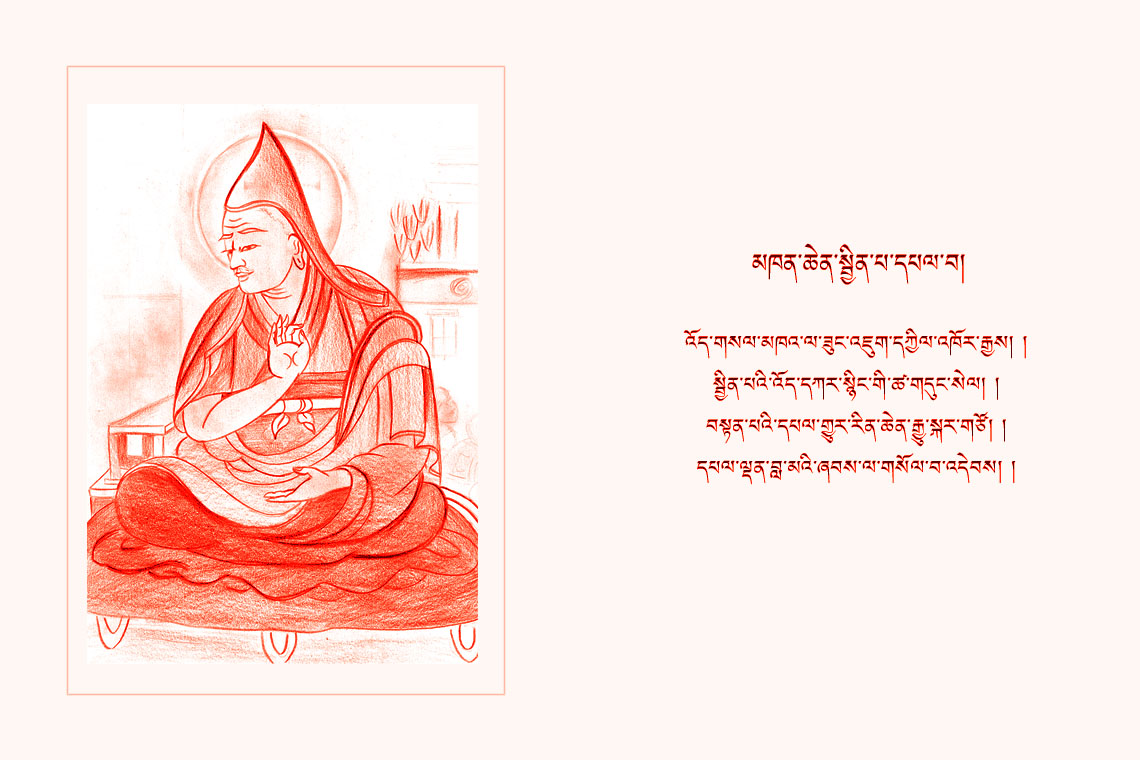 མཁན་ཆེན་སྦྱིན་པ་དཔལ་བ།
འོད་གསལ་མཁའ་ལ་ཟུང་འཇུག་དཀྱིལ་འཁོར་རྒྱས། །
སྦྱིན་པའི་འོད་དཀར་སྙིང་གི་ཚ་གདུང་སེལ། །
བསྟན་པའི་དཔལ་གྱུར་རིན་ཆེན་རྒྱུ་སྐར་གཙོ། །
དཔལ་ལྡན་བླ་མའི་ཞབས་ལ་གསོལ་བ་འདེབས། །